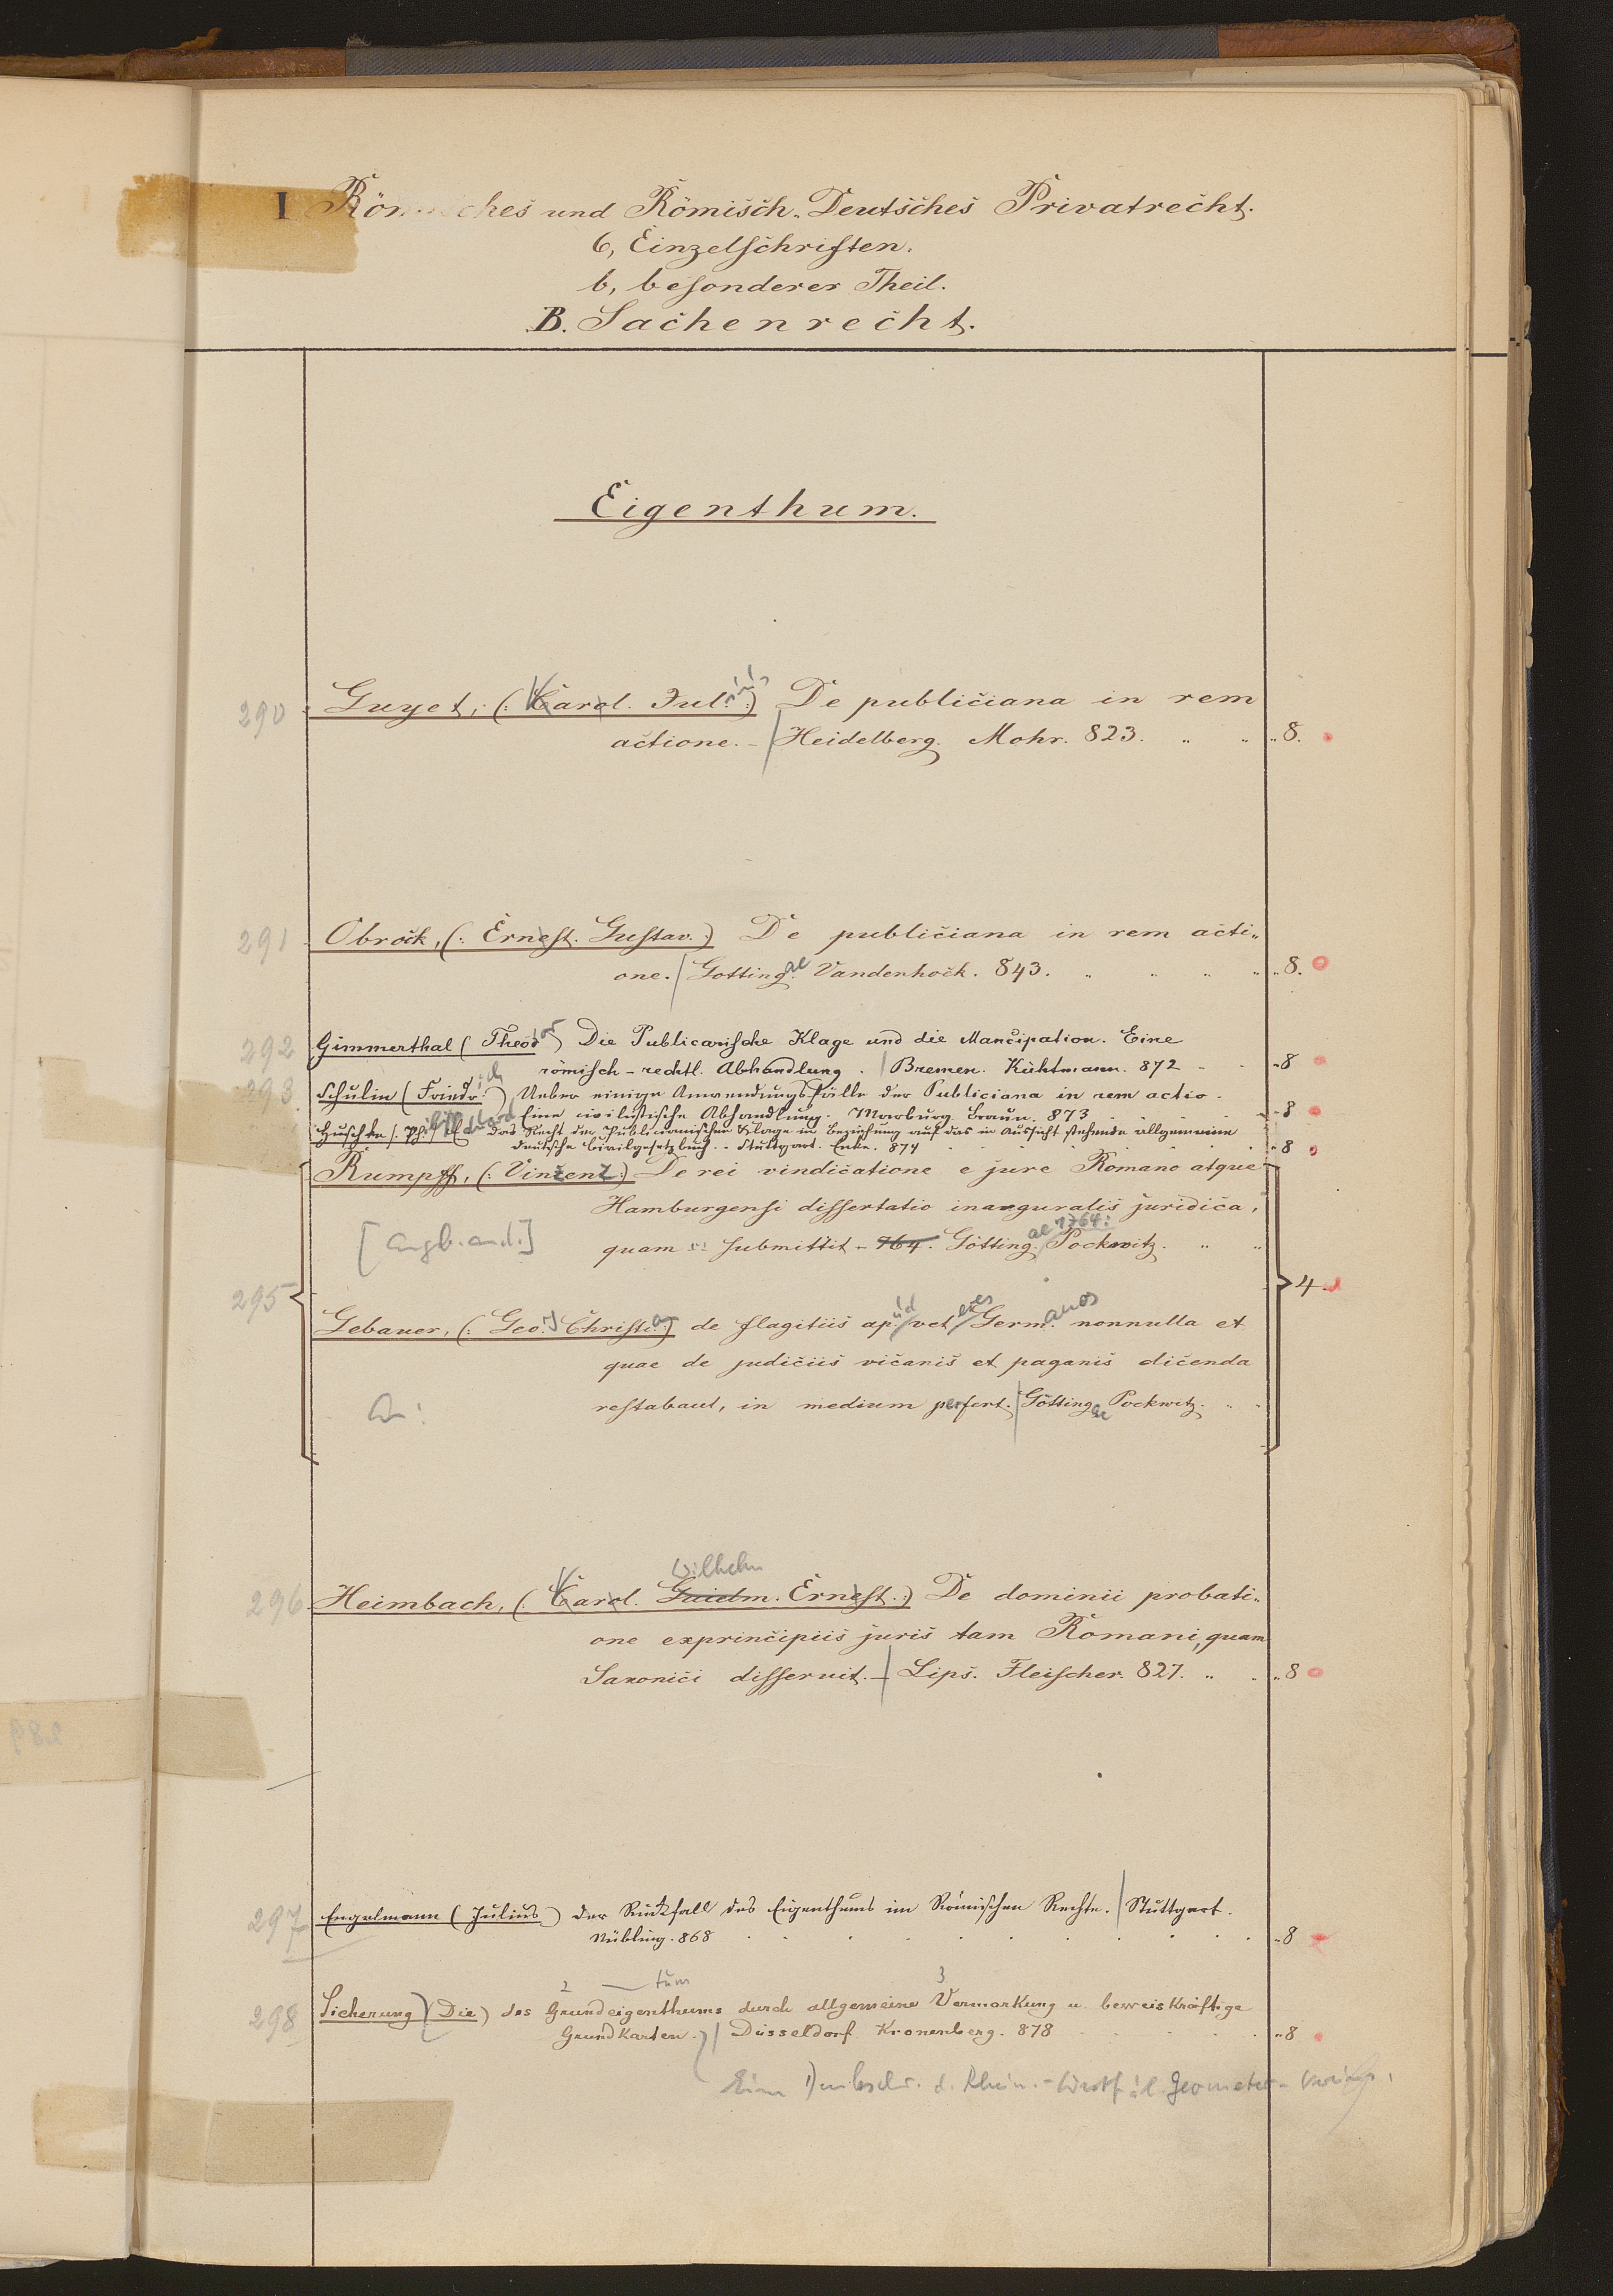 I Römisches und Römisch-Deutsches Privatrecht.
6, Einzelschriften.
b, besonderer Theil.
B. Sachenrecht.
Eigenthum.
290 Guyet, (: Carol. Jul. :) De publiciana in rem
actione. – Heidelberg. Mohr. 823. „ „ „ 8.
291 Obrock, (: Ernest. Gustav. :) De publiciana in rem acti„
one. Gotting.ae Vandenhock. 843. „ „ „ „ „ 8.
292 Gimmerthal (Theodor) Die Publicarische Klage und die Mancipation. Eine
römisch-rechtl. Abhandlung. Bremen. Kühtmann. 872 - „ 8
293. Schulin (Friedrich) Ueber einige Anwendungsfälle der Publiciana in rem actio.
Eine civilistische Abhandlung. Marburg. Braun. 873 . . . „ 8
Huschke (Ph. Eduard Das Recht der Publicianischen Klage in Beziehung auf das in Aussicht stehende allgemeine
deutsche Civilgesetzbuch. - Stuttgart. Enke. 874 . . . . . „ 8
Rumpff, (: Vinzenz :) De rei vindicatione e jure Romano atque
Hamburgensi dissertatio inauguralis juridica,
[angb. and.] quam submittit - 764. Götting.ae 1764: Pockwitz. „ „
295 4.
Gebauer, (: Geo. Christ. :) de flagitiis apud veteres Germanos nonnulla et
quae de judiciis vicanis et paganis dicenda
An: restabant, in medium perfert. Göttingae Pockwitz. „ „
Wilhelm
296 Heimbach, (: Carol. Guielm. Ernest. :) De dominii probati„
one exprincipiis juris tam Romani, quam
Saxonici disseruit. – Lips. Fleischer. 827. „ . „ 8
289
297 Engelmann (Julius) der Rückfall des Eigenthums im Römischen Rechte. Stuttgart.
Nübling. 868 . . . . . . . . „ 8
2 tum 3
298 Sicherung (Die) des Grundeigenthums durch allgemeine Vermarkung u. beweiskräftige
Grundkarten. Düsseldorf Kronenberg. 878 . . . . „ 8
Eine Denkschr. d. Rhein.-Westfäl. Geometer-